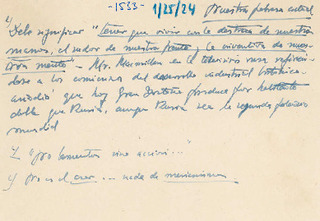 -1533- 1/25/24 Nuestra pobreza actual
"Debe significar "tener que vivir con la destreza de nuestras
manos, el sudor de nuestra frente y la inventiva de nues-
tra mente" - Mr. Macmillan en la televisión rusa refirién-
dose a los comienzos del desarrollo industrial británico.
añadió que hoy Gran Bretaña produce por habitante
doble que Rusia, aunque Rusia sea la segunda potencia
mundial
Y "no lamentos sino acción..."
Y no es el caer ... nada de